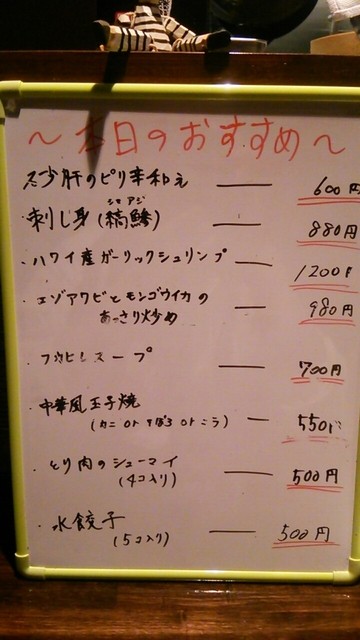 ～本日のおすすめ～
・砂肝のピリ辛和え ― 600円
シマアジ
・刺し身(縞鯵) ― 880円
・ハワイ産ガーリックシュリンプ ― 1200円
・エゾアワビとモンゴウイカの
あっさり炒め ― 980円
・フカヒレスープ ― 700円
・中華風玉子焼 ― 550円
(カニ or or ニラ)
・とり肉のシューマイ ― 500円
(4コ入り)
・水餃子 ― 500円
(5コ入り)